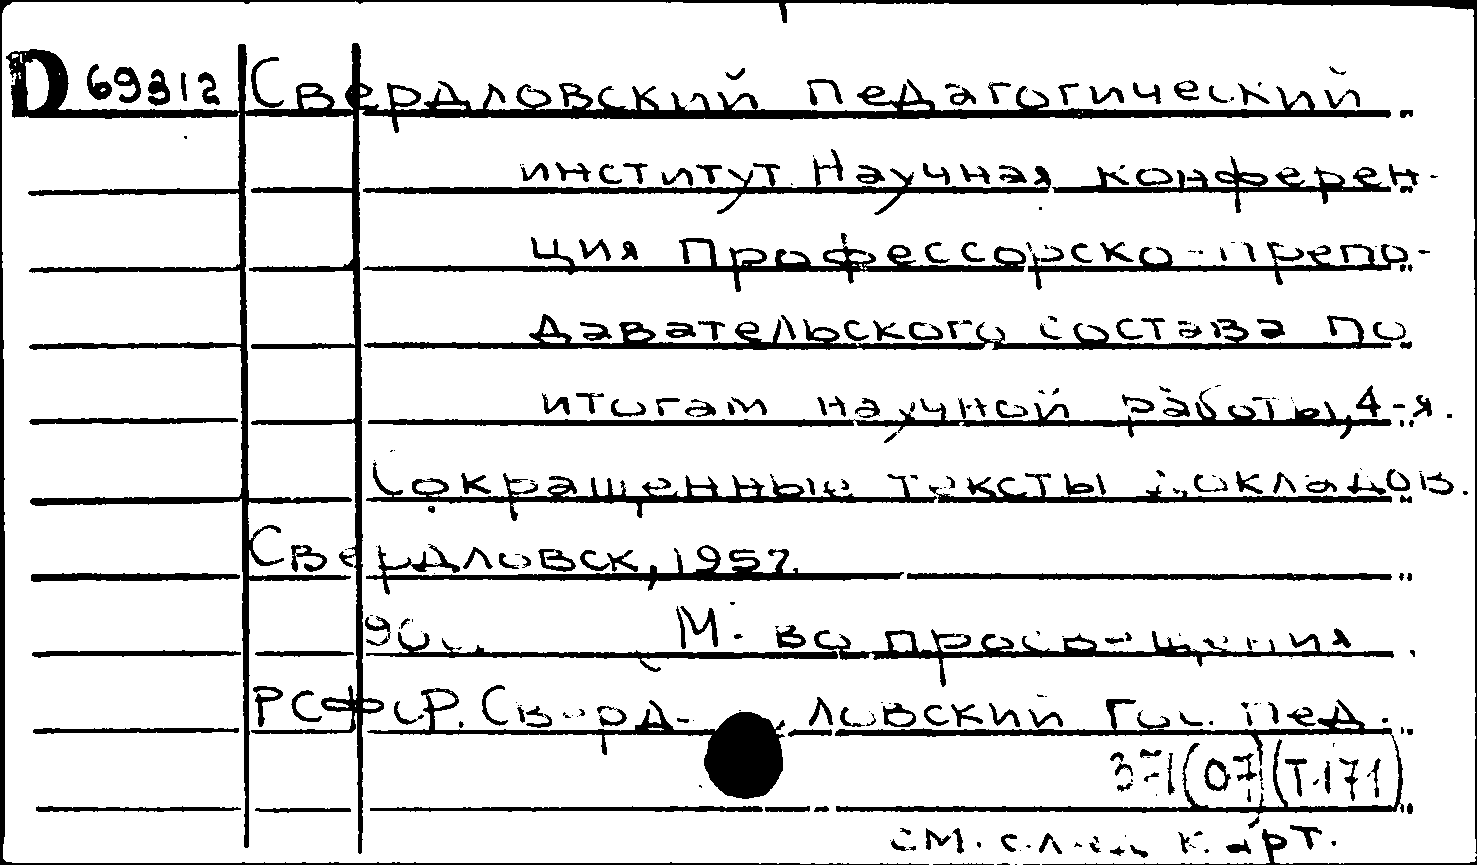 D 69312 Свердловский педагогический
институт Научная конферен-
ция профессорско-препо-
давательского состава по
итогам научной работы, 4-я.
Сокращенные тексты докладов.
Свердловск, 1957.
90 с. М-во просвещения
РСФСР. Сверд- ловский Гос. пед.
371(07)(Т.171)
см. след. карт.